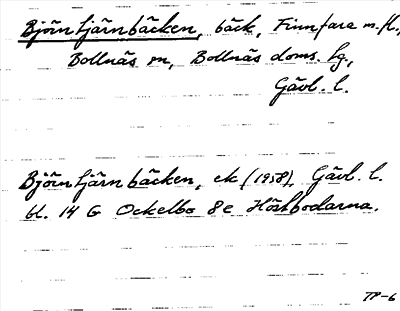 Björntjärnbäcken, bäck, Finnfara m.fl.,
Bollnäs sn, Bollnäs doms. hg.,
Gävl. l.
Björntjärnbäcken, ek (1958), Gävl. l.
bl. 14 G Ockelbo 8e Höstbodarna.
TP-6